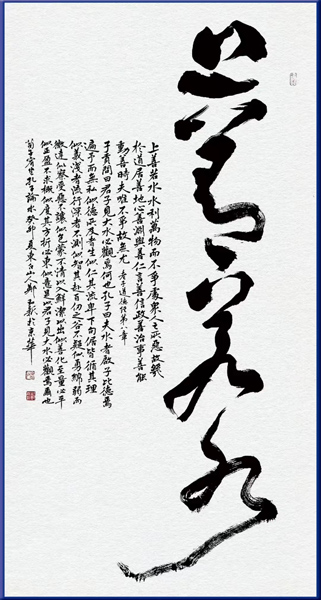 上善若水
上善若水水利萬物而不爭處衆人之所惡故幾
於道居善地心善淵與善仁言善信政善治事善能
動善時夫唯不爭故無尤 老子道德經第八章
子貢問曰君子見大水必觀焉何也孔子曰夫水者啟子比德焉
遍予而無私似德所及者生似仁其流卑下句倨皆循其理
似義淺者流行深者不測似智其赴百仞之谷不疑似勇綿弱而
微達似察受惡不讓似包蒙不清以入鮮潔以出似善化至量必平
似正盈不求概似度其萬折必東似意是以君子見大水必觀焉爾也
荀子宥坐孔子論水癸卯夏東人鄭於京華